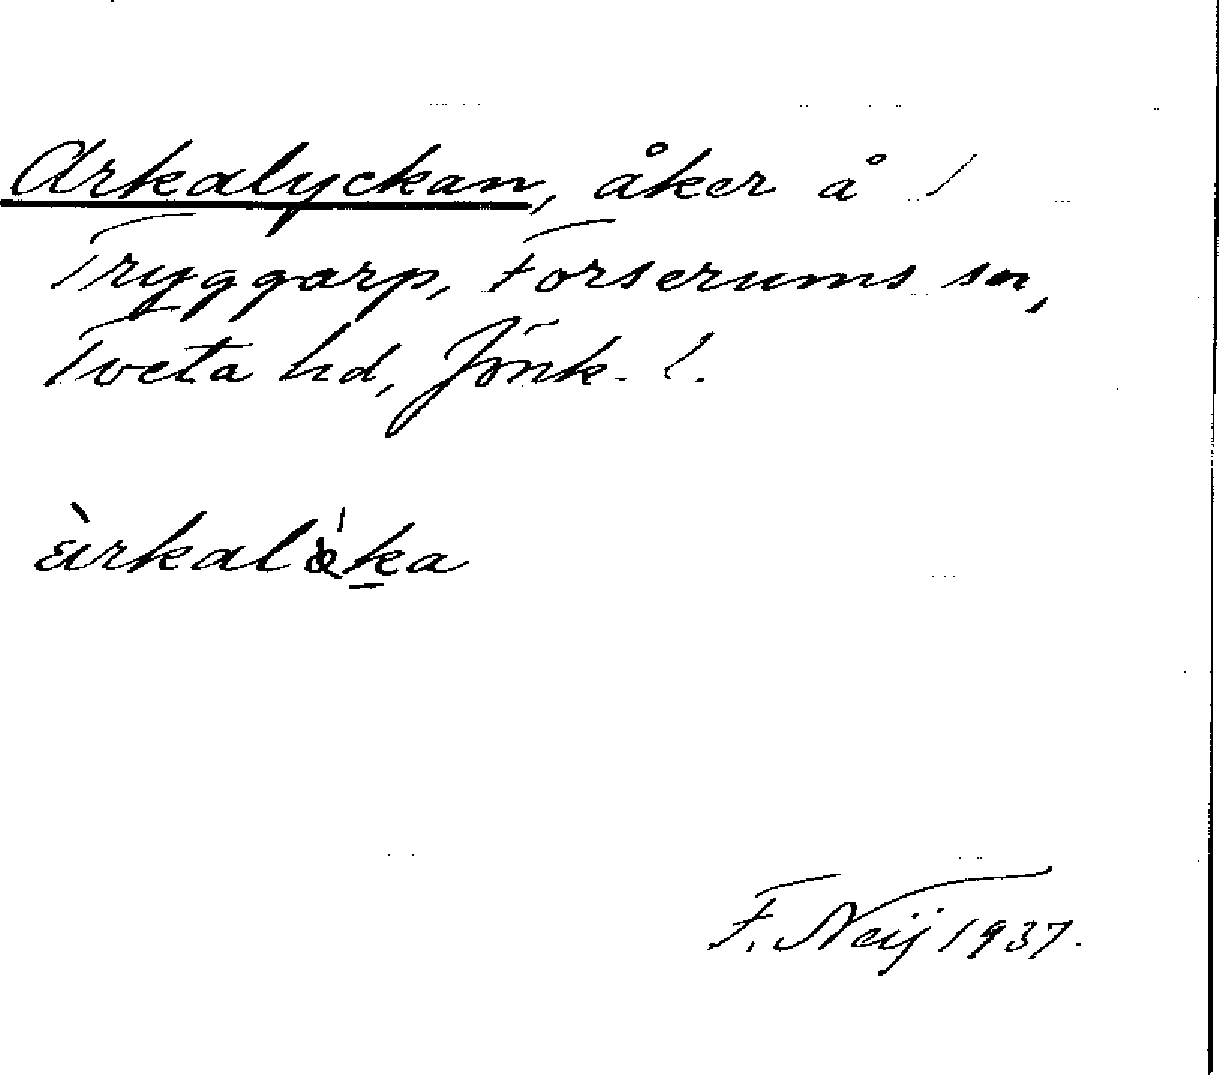 Arkalyckan, åker å 1
Tryggarp, Forserums sn,
Tveta hd, Jönk. l.
F. Neij 1937.